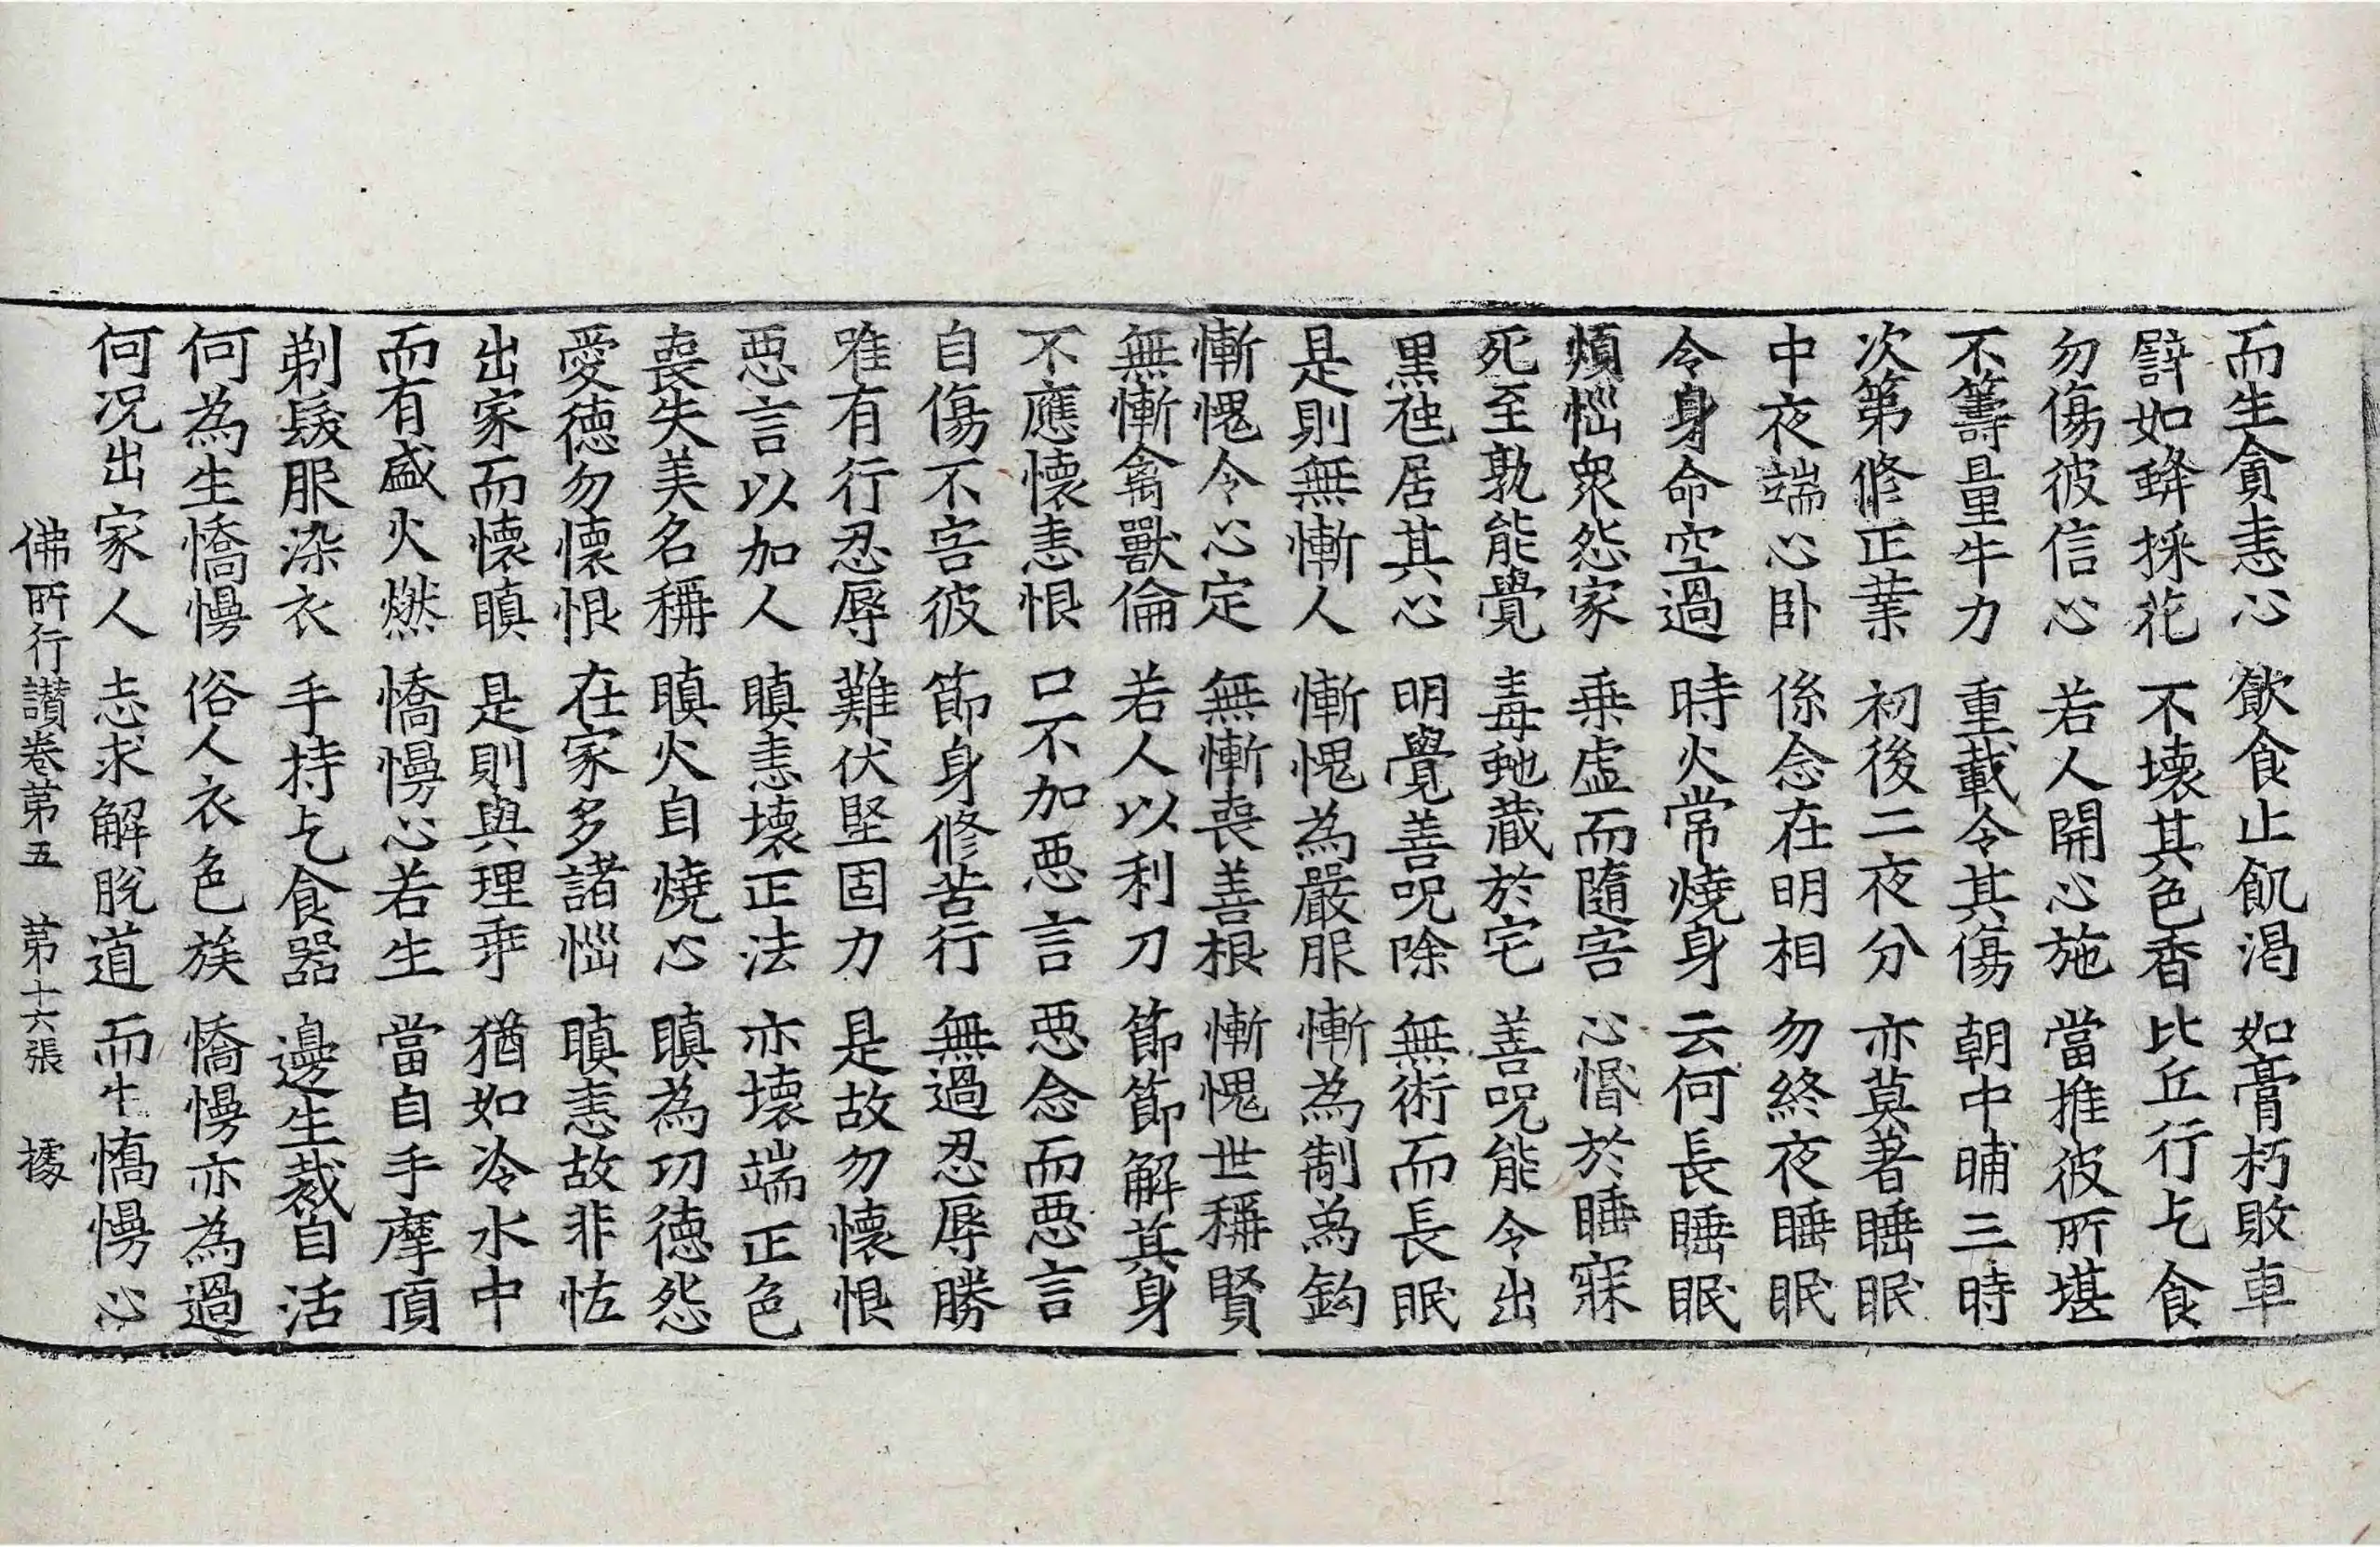 而生貪恚心 飲食止飢渴 如膏朽敗車
譬如蜂採花 不壞其色香 比丘行乞食
勿傷彼信心 若人開心施 當推彼所堪
不籌量牛力 重載令其傷 朝中晡三時
次第修正業 初後二夜分 亦莫著睡眠
中夜端心卧 係念在明相 勿終夜睡眠
令身命空過 時火常燒身 云何長睡眠
煩惱衆怨家 乘虛而隨害 心惛於睡寐
死至孰能覺 毒虵藏於宅 善呪能令出
黑虵居其心 明覺善呪除 無術而長眠
是則無慚人 慚愧為嚴服 慚為制象鈎
慚愧令心定 無慚喪善根 慚愧世稱賢
無慚禽獸倫 若人以利刀 節節解其身
不應懷恚恨 口不加惡言 惡念而惡言
自傷不害彼 節身修苦行 無過忍辱勝
唯有行忍辱 難伏堅固力 是故勿懷恨
惡言以加人 瞋恚壞正法 亦壞端正色
喪失美名稱 瞋火自燒心 瞋為功德怨
愛德勿懷恨 在家多諸惱 瞋恚故非恠
出家而懷瞋 是則與理乖 猶如冷水中
而有盛火燃 憍慢心若生 當自手摩頂
剃髮服染衣 手持乞食器 邊生裁自活
何為生憍慢 俗人衣色族 憍慢亦為過
何況出家人 志求解脫道 而生憍慢心
佛所行讚卷第五 第十六張 據